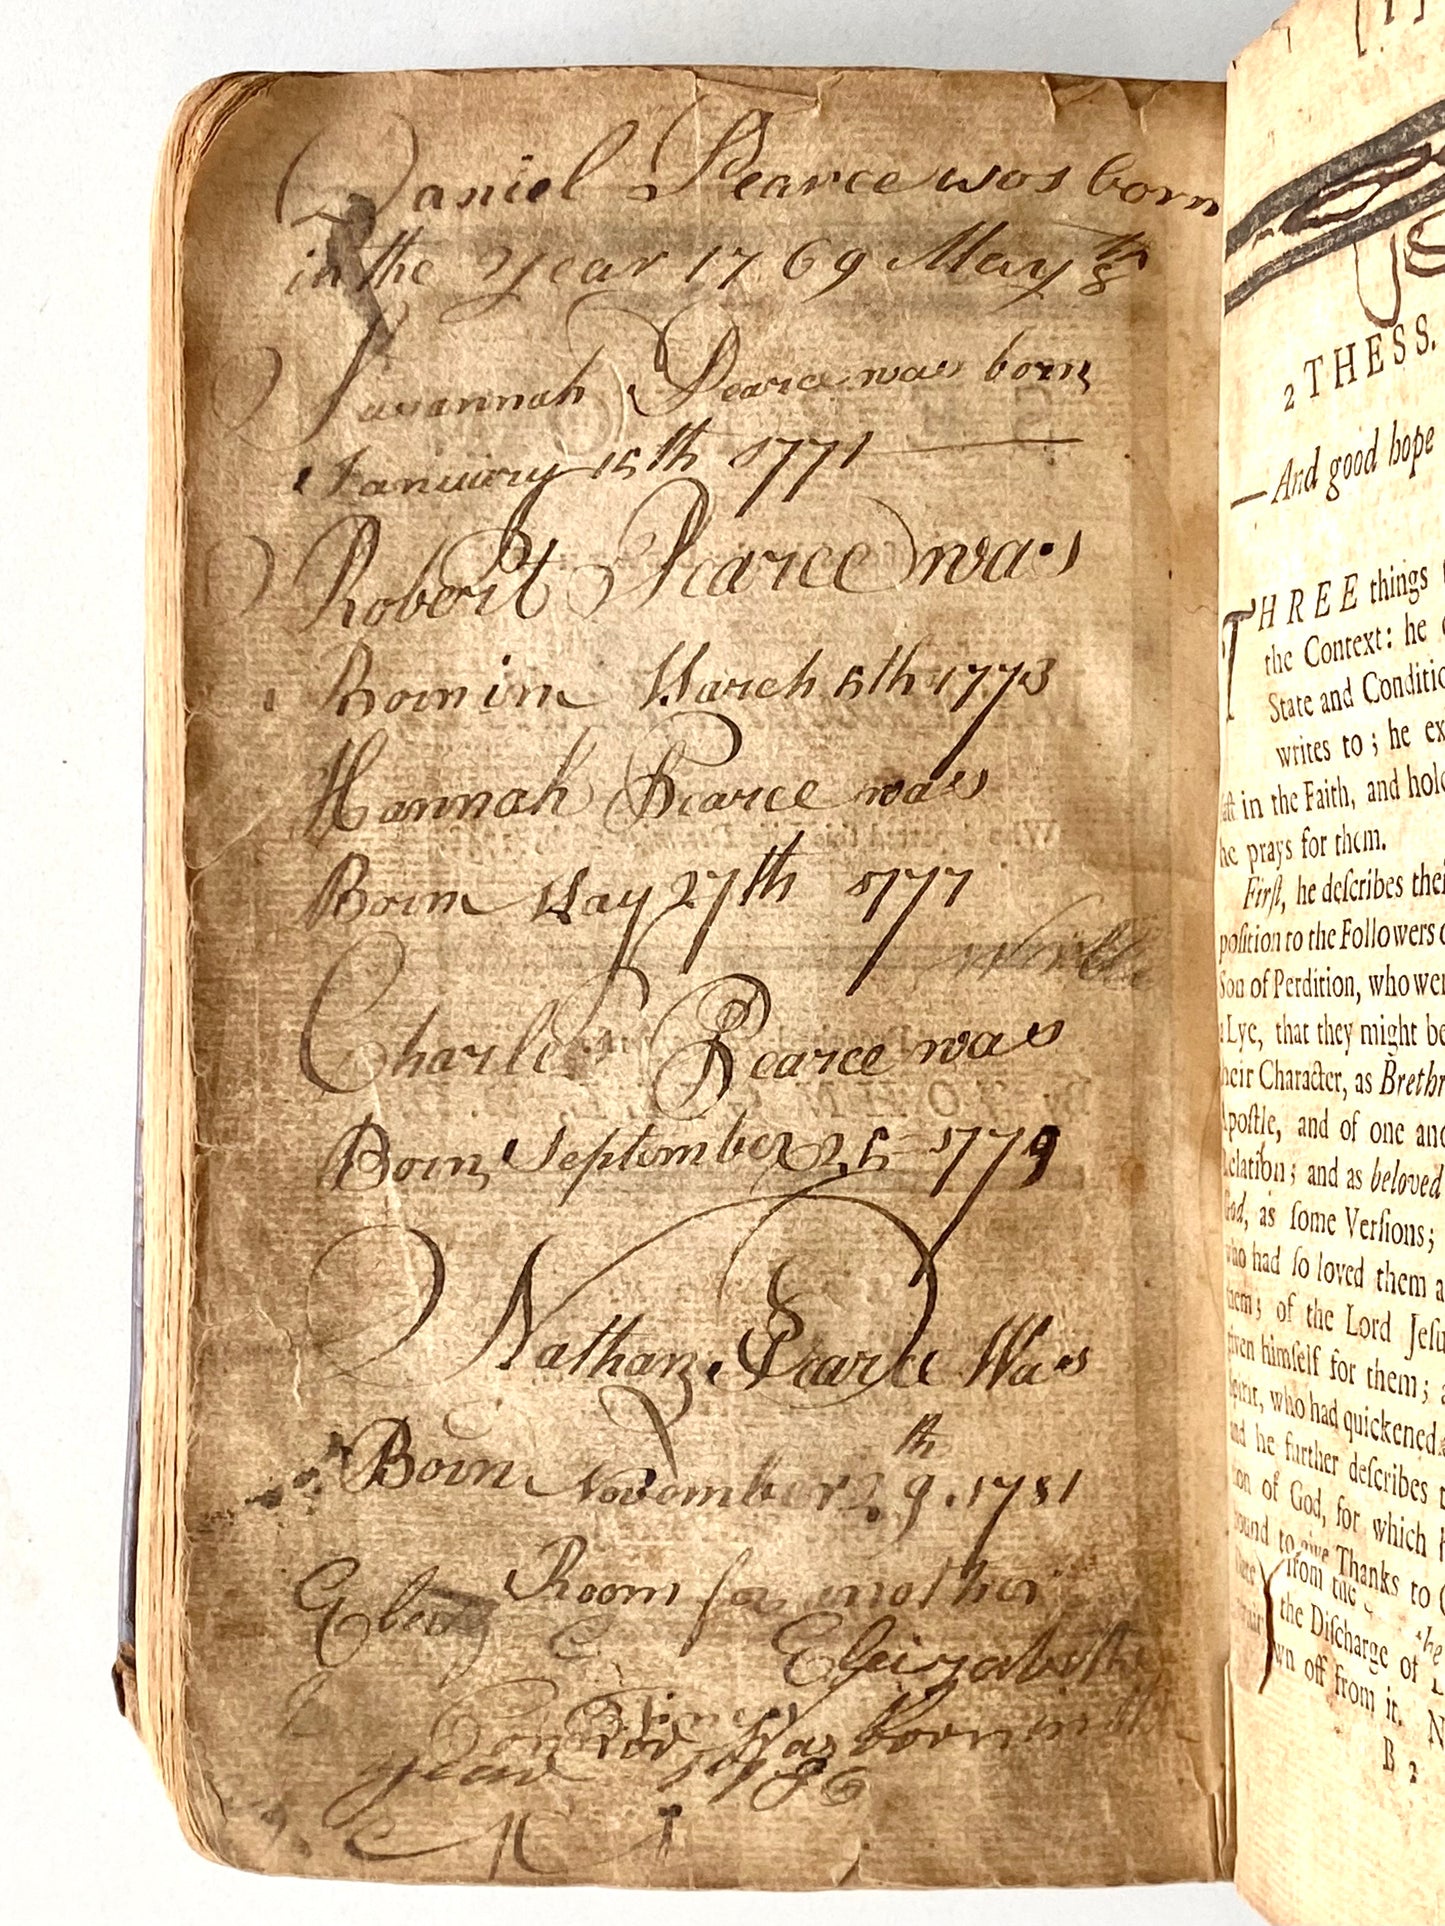 Daniel Pearce was born
in the Year 1769 May 8th
Savannah Pearce was born
January 15th 1771
Robert Pearce was
Born in March 5th 1773
Hannah Pearce was
Born May 27th 1777
Charles Pearce was
Born September 25 1779
Nathan Pearce Was
Born November 29th 1781
Room for mother
Elizabeth
was born in
year 1786
2 THESS.
—And good hope
THREE things
the Context: he
State and Conditi
writes to; he ex
in the Faith, and hold
he prays for them.
First, he describes thei
position to the Followers
Son of Perdition, who wer
Lye, that they might be
heir Character, as Brethr
Apostle, and of one and
Relation; and as beloved
God, as some Versions;
who had so loved them a
them; of the Lord Jesu
given himself for them;
Spirit, who had quickened
and he further describes
ion of God, for which
bound to give Thanks to
from the
the Discharge of
wn off from it.
B 2